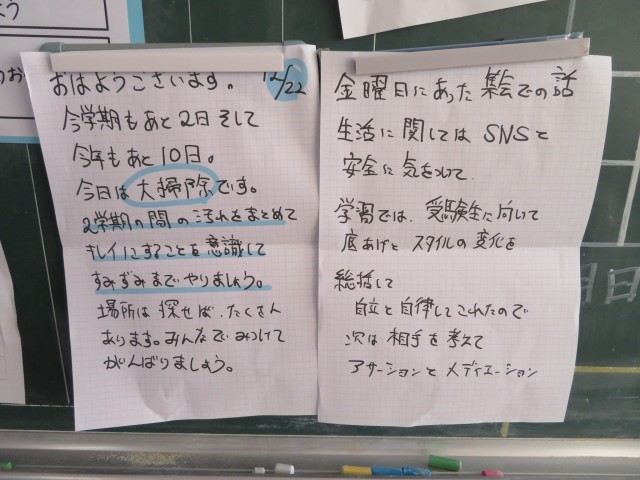 おはようございます。 12/22
今学期もあと2日そして
今年もあと10日。
今日は大掃除です。
2学期の間の汚れをまとめて
キレイにすることを意識して
すみずみまでやりましょう。
場所は探せば、たくさん
あります。みんなでみつけて
がんばりましょう。
金曜日にあった集会での話
生活に関してはSNSと
安全に気をつけて
学習では、受験生に向いて
底あげとスタイルの変化を
総括して
自立と自律してこれたので
次は相手を考えて
アサーションとメディエーション